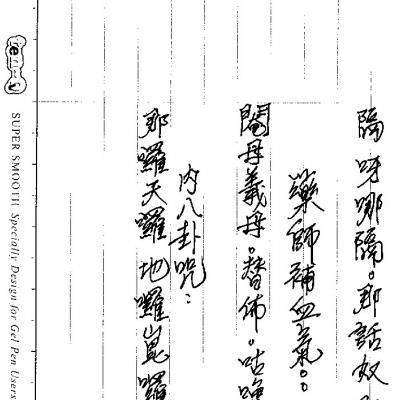 隔呀哪隔。那話奴
藥師補血氣。。
閹母義母。替佈。咕喚
內八卦咒：
那囉天囉地囉崑囉
SUPER SMOOTH Specially Design for Gel Pen Users